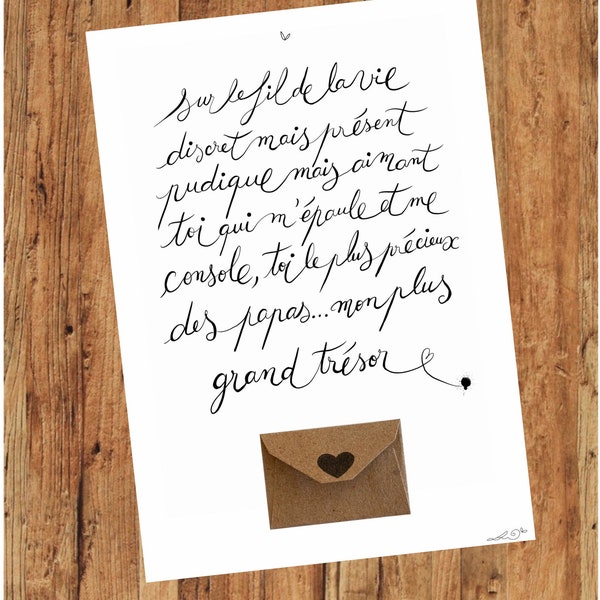 sur le fil de la vie
discret mais présent
pudique mais aimant
toi qui m'épaule et me
console, toi le plus précieux
des papas... mon plus
grand trésor